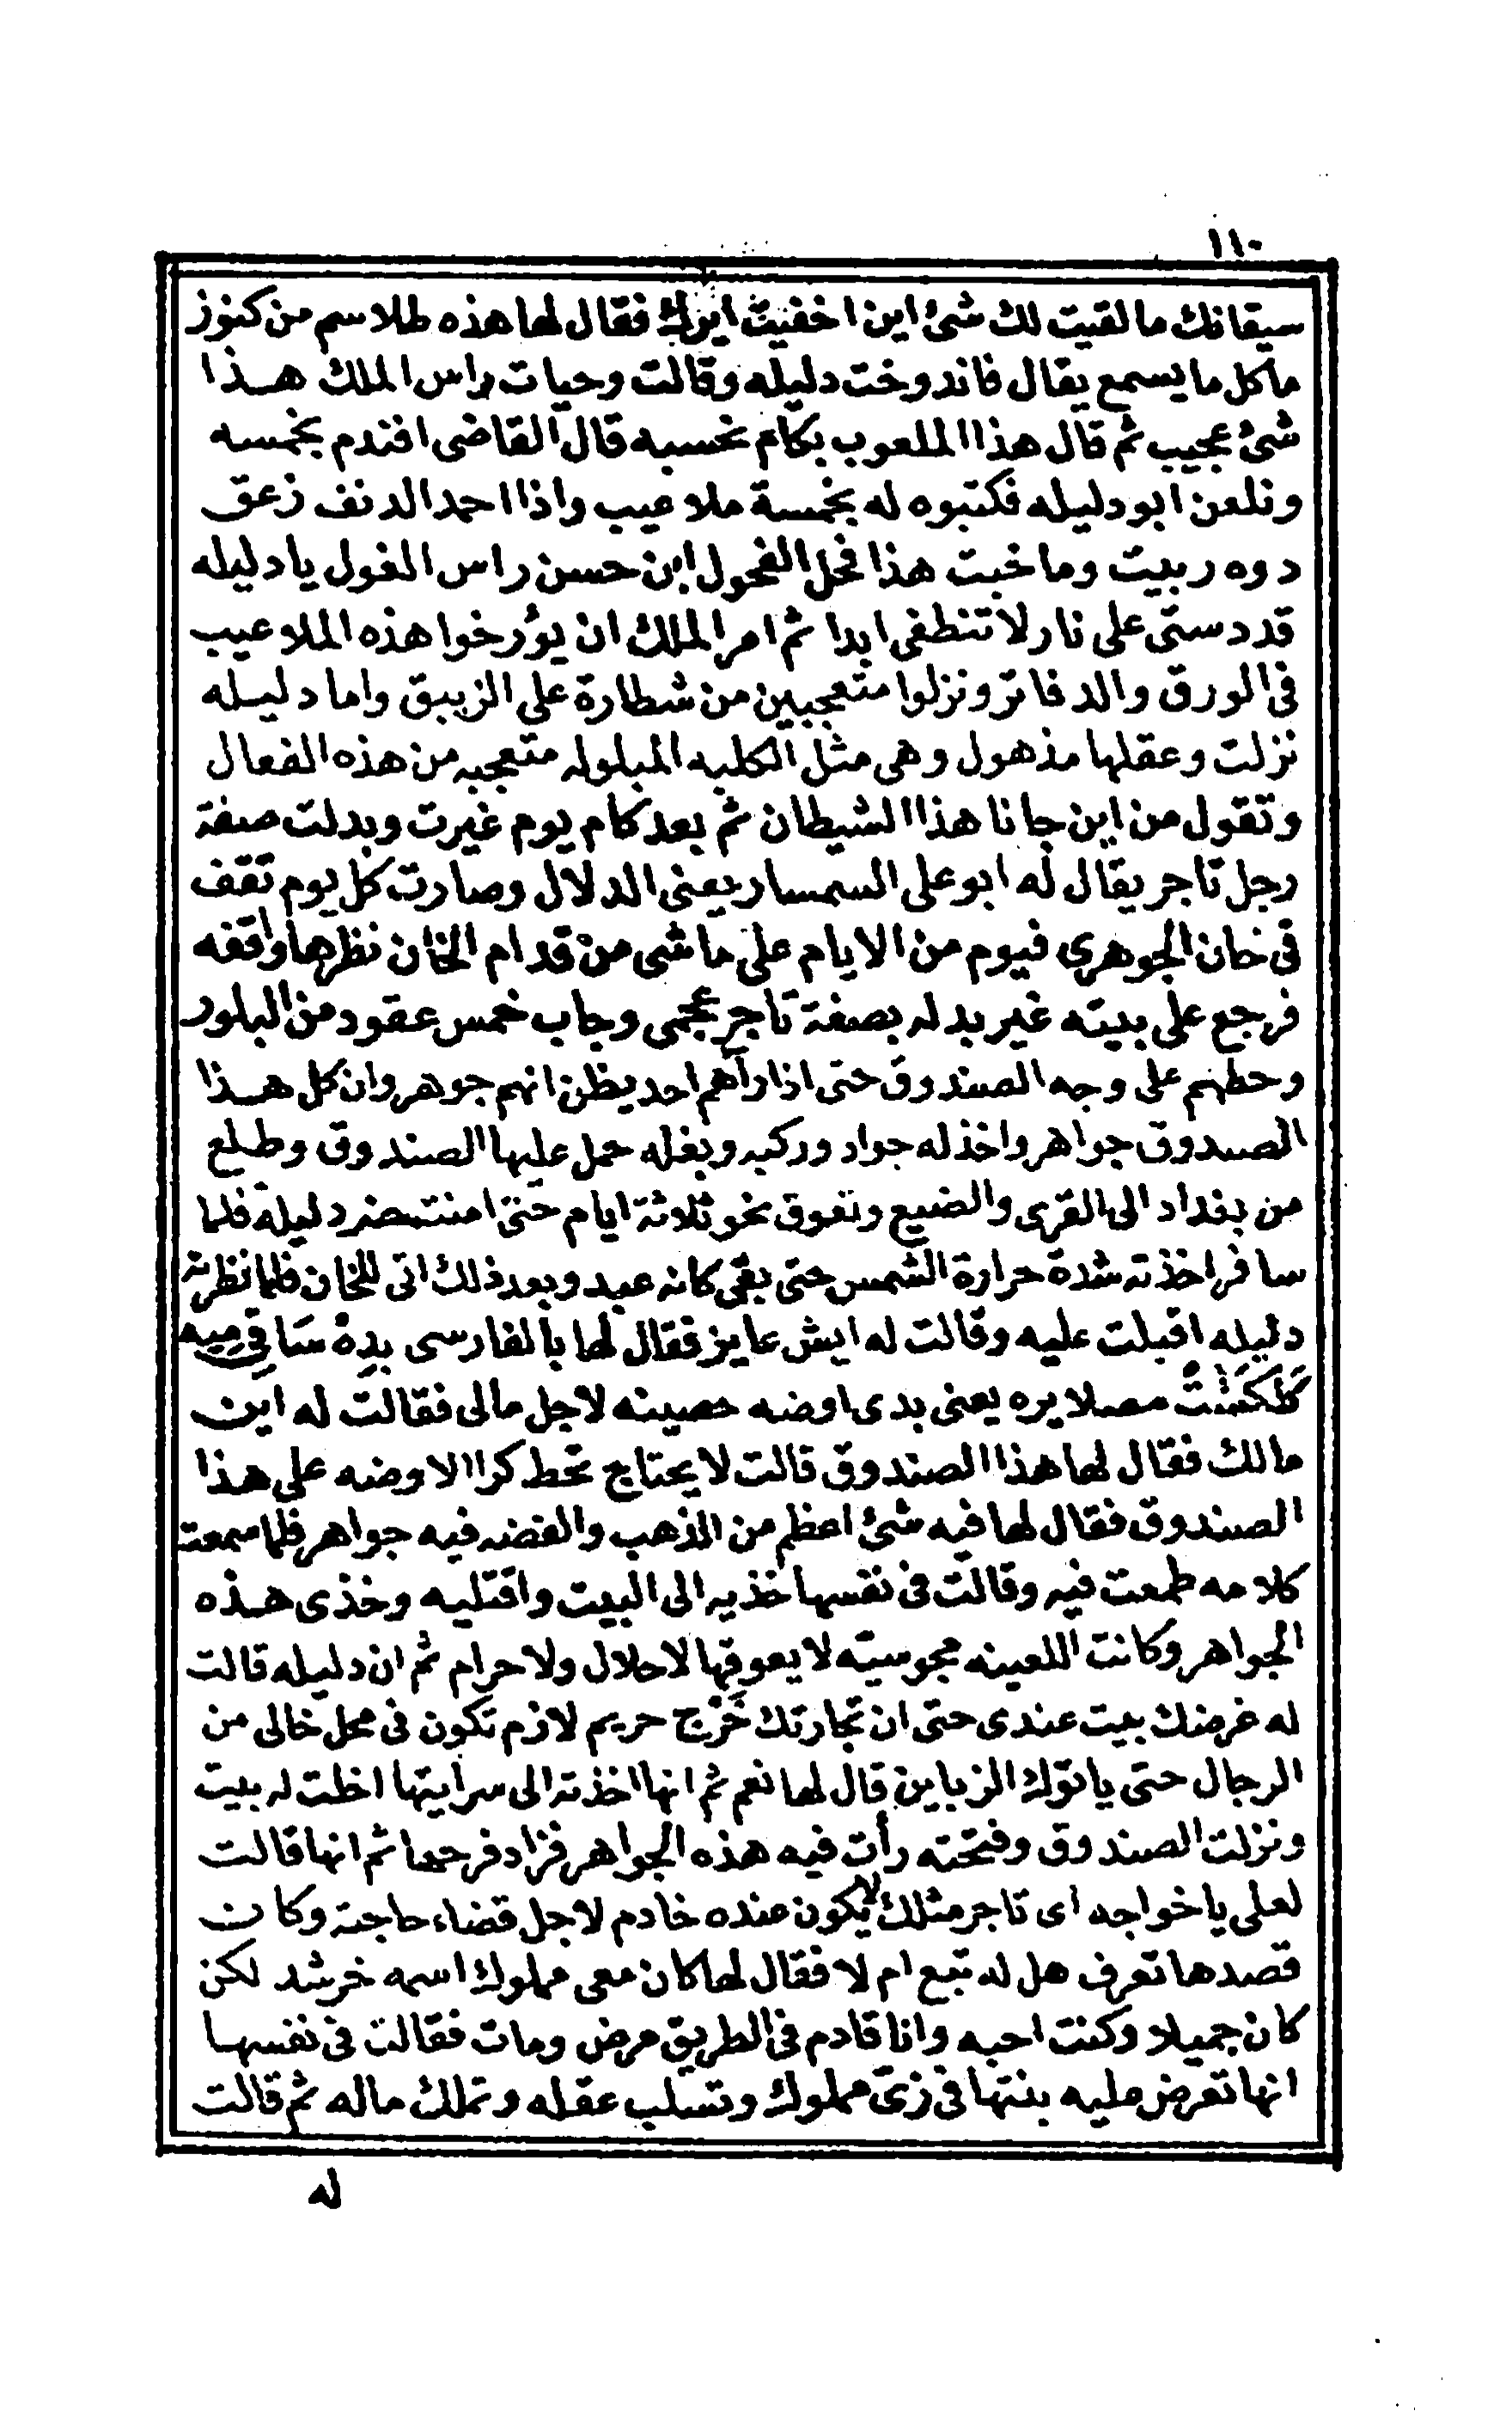 ١١٠
سيقانك ما لقيت لك شئ اين اخفيت ايرك فقال لها هذه طلاسم من كنوز
ما كل ما يسمع يقال فاندوخت دليله وقالت وحيات راس الملك هذا
شئ عجيب ثم قال هذا الملعوب بكام نحسبه قال القاضى افندم بخمسه
ونلعن ابو دليله فكتبوه له بخمسة ملاعيب واذا احمد الدنف زعق
دوه ربيت وما خبت هذا فحل الفحول ابن حسن راس الغول يا دليله
قد دستى على نار لا تنطفى ابدا ثم امر الملك ان يؤرخوا هذه الملاعيب
فى الورق والدفاتر ونزلوا متعجبين من شطارة على الزيبق واما دليله
نزلت وعقلها مذهول وهى مثل الكلبه المبلوله متعجبه من هذه الفعال
وتقول من اين جانا هذا الشيطان ثم بعد كام يوم غيرت وبدلت صفة
رجل تاجر يقال له ابو على السمسار يعنى الدلال وصارت كل يوم تقف
فى خان الجوهرى فيوم من الايام على ماشى من قدام الخان نظرها واقفه
فرجع على بيته غير بدله بصفة تاجر عجمى وجاب خمس عقود من البلور
وحطهم على وجه الصندوق حتى اذا رآهم احد يظن انهم جوهر وان كل هذا
الصندوق جواهر واخذ له جواد وركبه وبغله حمل عليها الصندوق وطلع
من بغداد الى القرى والضيع وتعوق نحو ثلاثة ايام حتى دليله فلما
سافر اخذته شدة حرارة الشمس حتى بقى كانه عبد وبعد ذلك اتى للخان فلما نظرته
دليله اقبلت عليه وقالت له ايش عايز فقال لها بالفارسى بده ساقى ميه
كلكشت مصلا يره يعنى بدى اوضه حصينه لاجل مالى فقالت له اين
مالك فقال لها هذا الصندوق قالت لا يحتاج تحط كرا الاوضه على هذا
الصندوق فقال لها فيه شئ اعظم من الذهب والفضه فيه جواهر فلما سمعت
كلامه طمعت فيه وقالت فى نفسها خذيه الى البيت واقتليه وخذى هذه
الجواهر وكانت اللعينه مجوسيه لا يعوقها لا حلال ولا حرام ثم ان دليله قالت
له غرضك بيت عندى حتى ان تجارتك خرج حريم لازم تكون فى محل خالى من
الرجال حتى ياتوك الزباين قال لها نعم ثم انها اخذته الى سرايتها اخلت له بيت
ونزلت الصندوق وفتحته رأت فيه هذه الجواهر فزاد فرحها ثم انها قالت
لعلى يا خواجه اى تاجر مثلك لا يكون عنده خادم لاجل قضاء حاجته وكان
قصدها تعرف هل له تبع ام لا فقال لها كان معى مملوك اسمه خرشد لكن
كان جميلا وكنت احبه وانا قادم فى الطريق مرض ومات فقالت فى نفسها
انها تعرض عليه بنتها فى زى مملوك وتسلب عقله وتملك ماله ثم قالت
له